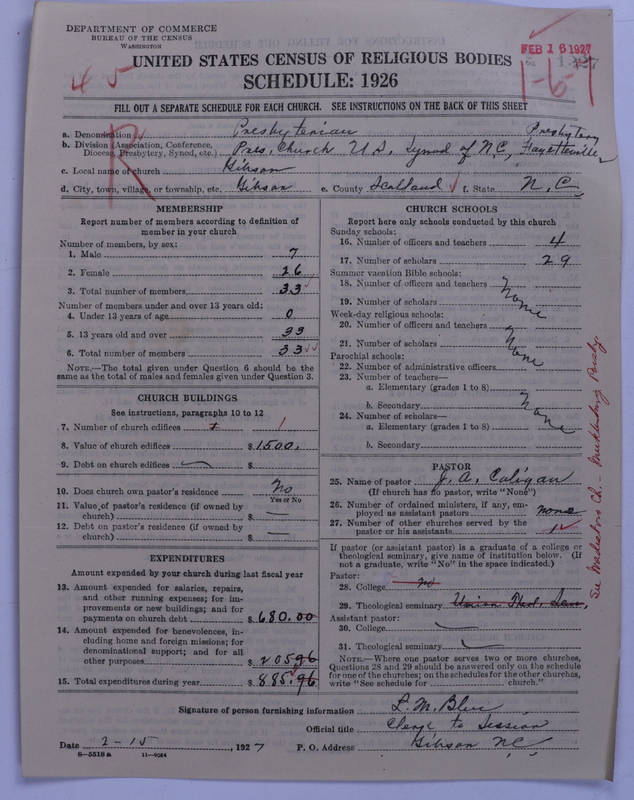 DEPARTMENT OF COMMERCE
BUREAU OF THE CENSUS
WASHINGTON
FEB 16 1927
1-6-1
45
R
UNITED STATES CENSUS OF RELIGIOUS BODIES
SCHEDULE: 1926
FILL OUT A SEPARATE SCHEDULE FOR EACH CHURCH. SEE INSTRUCTIONS ON THE BACK OF THIS SHEET
a. Denomination Presbyterian Presbytery
b. Division (Association, Conference, Diocese, Presbytery, Synod, etc.) Pres. Church U.S. Synod of N.C., Fayetteville
c. Local name of church Gibson
d. City, town, village, or township, etc. Gibson e. County Scotland f. State N.C.
MEMBERSHIP
Report number of members according to definition of
member in your church
Number of members, by sex:
1. Male 7
2. Female 26
3. Total number of members 33
Number of members under and over 13 years old:
4. Under 13 years of age 0
5. 13 years old and over 33
6. Total number of members 33
NOTE.—The total given under Question 6 should be the
same as the total of males and females given under Question 3.
CHURCH BUILDINGS
See instructions, paragraphs 10 to 12
7. Number of church edifices 1
8. Value of church edifices $1500.
9. Debt on church edifices — $
10. Does church own pastor's residence No
Yes or No
11. Value of pastor's residence (if owned by
church) $ —
12. Debt on pastor's residence (if owned by
church) $ —
EXPENDITURES
Amount expended by your church during last fiscal year
13. Amount expended for salaries, repairs,
and other running expenses; for im-
provements or new buildings; and for
payments on church debt $680.00
14. Amount expended for benevolences, in-
cluding home and foreign missions; for
denominational support; and for all
other purposes $205.96
15. Total expenditures during year $885.96
CHURCH SCHOOLS
Report here only schools conducted by this church
Sunday schools:
16. Number of officers and teachers 4
17. Number of scholars 29
Summer vacation Bible schools:
18. Number of officers and teachers
19. Number of scholars None
Week-day religious schools:
20. Number of officers and teachers
21. Number of scholars None
Parochial schools:
22. Number of administrative officers
23. Number of teachers—
a. Elementary (grades 1 to 8)
b. Secondary None
24. Number of scholars—
a. Elementary (grades 1 to 8)
b. Secondary
PASTOR
25. Name of pastor J. A. Caligan
(If church has no pastor, write "None")
26. Number of ordained ministers, if any, em-
ployed as assistant pastors none
27. Number of other churches served by the
pastor or his assistants 1
If pastor (or assistant pastor) is a graduate of a college or
theological seminary, give name of institution below. (If
not a graduate, write "No" in the space indicated.)
Pastor:
28. College no
29. Theological seminary Union Theol. Sem.
Assistant pastor:
30. College
31. Theological seminary
NOTE.—Where one pastor serves two or more churches,
Questions 28 and 29 should be answered only on the schedule
for one of the churches; on the schedules for the other churches,
write "See schedule for church."
Signature of person furnishing information L. M. Blue
Official title Clerk to Session
Date 2-15, 1927 P. O. Address Gibson NC
8—5518a 11—9084